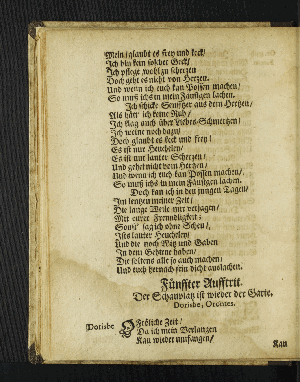 Nein/ glaubt es frey und keck/
Ich bin kein solcher Geck/
Ich pflege wohl zu scherzen
Doch geht es nicht von Herzen.
Und wenn ich euch kan Possen machen/
So muß ichs in mein Fäustgen lachen.
Ich schicke Seuffzer aus dem Hertzen/
Als hätt' ich keine Ruh/
Ich klag auch über Liebes-Schmertzen/
Ich weine noch dazu/
Doch glaubt es keck und frey/
Es ist nur Heucheley/
Es ist nur lauter Scherzen
Und gehet nicht vom Herzen/
Und wenn ich euch kan Possen machen/
So muß ichs in mein Fäustgen lachen.
Doch kan ich in den jungen Tagen/
Im lentzen meiner Zeit/
Die lange Weile mir verjagen/
Mit eurer Freundligkeit:
So sag ich ohne Scheu/
Ists lauter Heucheley/
Und die noch Witz und Gaben
In dem Gehirne haben/
Die solten's alle so auch machen/
Und euch hernach fein dicht auslachen.
Fünffter Aufftrit.
Der Schauplatz ist wieder der Garte.
Dorisbe, Orontes.
Dorisbe Fröliche Zeit/
Da ich mein Verlangen
Kan wieder umfangen/
Kan